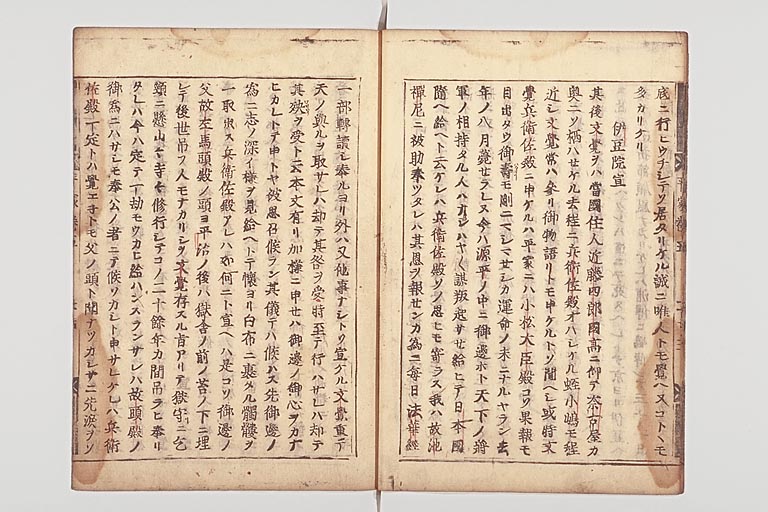 底ニ行ヒウチシテソ居タリケル誠ニ唯人トモ覺ヘヌコトヽモ
多カリケリ
伊豆院宣
其後文覺ヲハ當國住人近藤四郎國高ニ仰テ奈古屋カ
奥ニソ栖ハセケル去程ニ兵衛佐殿オハシケル蛭小嶋モ程
近シ文覺常ハ参リ御物語リトモ申ケルトソ聞ヘシ或時文
覺兵衛佐殿ニ申ケルハ平家ニハ小松大臣殿コソ果報モ
目出タウ御壽モ
運命ノ末ニナルヤラン去
年ノ八月薨セラレヌ今ハ源平ノ中ニ御邊ホト天下ノ將
軍ノ相持タル人ハナシハヤ〳〵謀叛起サセ給ヒテ日本國
隨ヘ給ヘト云ケレハ兵衛佐殿ソノ思ヒモ寄ラス我ハ故池
禪尼ニ被助奉ツタレハ其恩ヲ報センカ為ニ毎日法華經
一部轉讀シ奉ルヨリ外ハ又他事ナシトソ宣ケル文覺重テ
天ノ與ルヲ取サレハ却テ其咎ヲ受時至テ行ハサレハ却テ
其殃ヲ受ト云本文有リ加様ニ申セハ御邊ノ御心ヲカナ
ヒカレトテ申トヤ被思召候ラン其儀テハ候ハス先御邊ノ
為ニ志ノ深イ様ヲ見給ヘトテ懐ヨリ白布ニ裹タル髑髏ヲ
一取出ス兵衛佐殿アレハ如何ニト宣ヘハ是コソ御邊ノ
父故左馬頭殿ノ頭ヨ平治ノ後ハ獄舎ノ前ノ苔ノ下ニ埋
レテ後世弔フ人モナカリシヲ文覺存スル旨アリテ獄守ニ乞
頸ニ懸山々寺々修行シテコノ二十餘年カ間弔ラヒ奉リ
タレハ今ハ定テ一劫モウカヒ給ハンスランサレハ故頭殿ノ
御為ニハサレモ奉公ノ者ニテ候ソカシト申サレケレハ兵衛
佐殿一定トハ覺エネトモ父ノ頭ト聞ナツカシサニ先涙ヲソ